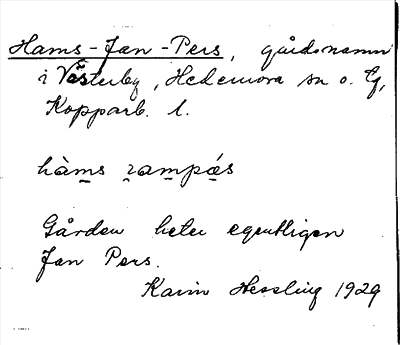 Hams-Jan-Pers, gårdsnamn
i Västerby, Hedemora sn o. tg,
Kopparb. l.
hàms rampás
Gården heter egentligen
Jan Pers.
Karin Hessling 1929